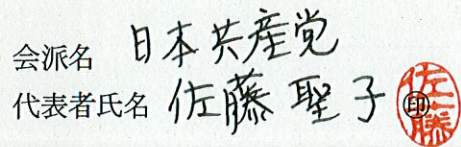 会派名 日本共産党
代表者氏名 佐藤 聖子 ㊞ 佐藤